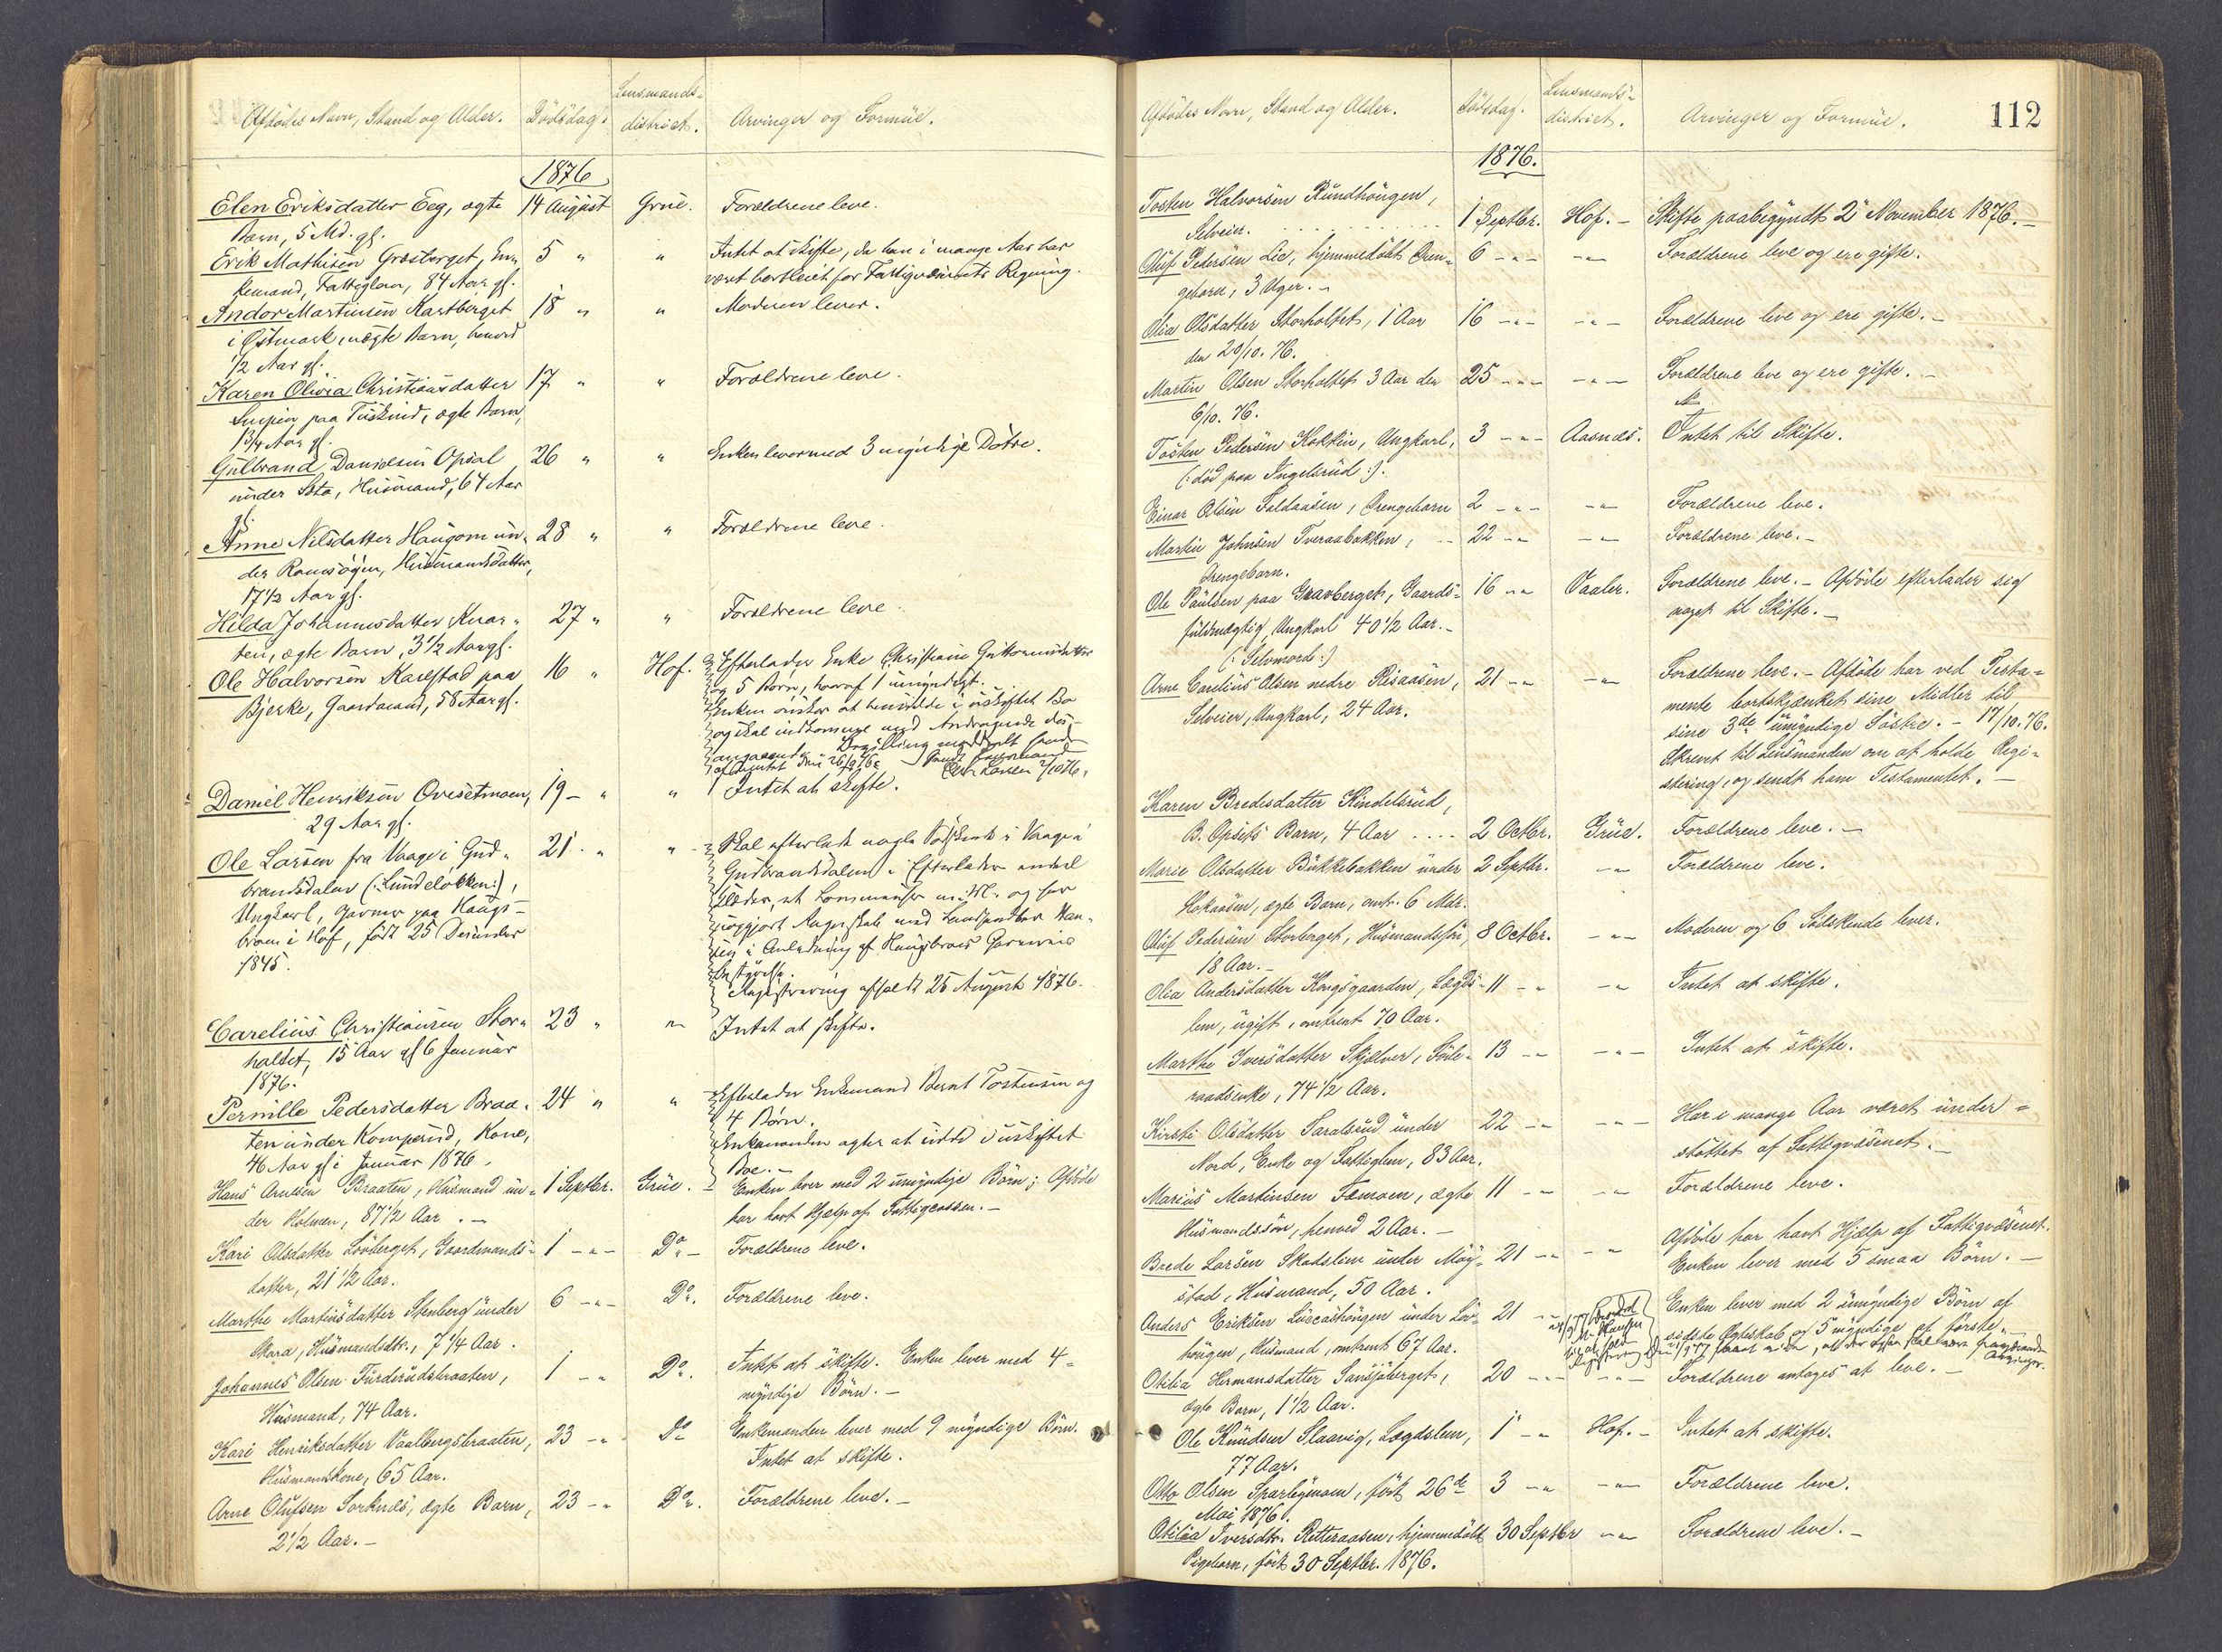 Afdødes Navn, Stand og Alder. Dödsdag. Lensmands-
district. Arvinger og Formue.
1876
Elen Eriksdatter Eeg, ægte 14 August Grue. Forældrene leve.
Barn, 5 Md. gl.
Erik Mathisen Græsberget, En- 5 " " Intet at skifte, da han i mange Aar har
kemand, Fattiglem, 84 Aar gl. været bortleiet for Fattigvæsenets Regning.
Andor Martinsen Kastberget 18 " " Moderen lever.
i Østmark, uægte Barn, henved
1/2 Aar gl.
Karen Olivia Christiansdatter 17 " " Forældrene leve.
paa ægte Barn,
1 3/4 Aar gl.
Gulbrand Danielsen Opsal 26 " " Enken lever med 3 myndige Døtre.
under Husmand, 64 Aar
gl.
Anne Nilsdatter Haugom un- 28 " " Forældrene leve.
der Husmandsdatter,
17 1/2 Aar gl.
Hilda Johannesdatter 27 " " Forældrene leve.
ægte Barn, 3 1/2 Aar gl.
Ole Halvorsen Karlstad paa 16 " Hof. Efterlader Enke Christiane Guttormsdatter
Bjerke, Gaardmand, 58 Aar gl. og 5 Børn, hvoraf 1 umyndigt.
Enken ønsker at hensidde i uskiftet Bo
og skal indkomme med Andragende des-
angaaende
Daniel Henriksen Ovesetmoen, 19 - " " Intet at skifte.
29 Aar gl.
Ole Larsen fra Vaage i Gud- 21 " " Skal efterlade nogle Södskende i Vaage i
brandsdalen (:Lundeløkken:), Gudbrandsdalen. Efterlader endel
Ungkarl, Garver paa Haugs- Klæder, et Lommeuhr m. M. og har
broen i Hof, født 25 December uopgjort Regnskab med
1845. i Anledning af Haugsbroens Garveries
Bestyrelse.
Registrering afholdt 25 August 1876.
Carelius Christiansen Stor- 23 " " Intet at skifte.
holtet, 15 Aar gl 6 Januar
1876.
Pernille Pedersdatter Braa- 24 " " Efterlader Enkemand Bernt Tostensen og
ten under Komperud, Kone, 4 Børn.
46 Aar gl i Januar 1876. Enkemanden agter at sidde i uskiftet
Boe. -
Hans Arntsen Braaten, Husmand un- 1 Septbr. Grue. Enken lever med 2 umyndige Börn; Afdöde
der Holmen, 87 1/2 Aar. - har havt Hjælp af Fattigcassen. -
Kari Olsdatter Lövberget, Gaardmands- 1 - " - Do - Forældrene leve.
datter, 21 1/2 Aar.
Marthe Martinsdatter Stenberg under 6 - " - Do. Forældrene leve.
Skara, Husmandsdtr., 7 1/4 Aar.
Johannes Olsen Furderudsbraaten, 1 - " Do. Intet at skifte. Enken lever med 4
Husmand, 74 Aar. myndige Börn. -
Kari Henriksdatter Vaalbergsbraaten, 23 - " Do Enkemanden lever med 9 myndige Börn.
Husmandskone, 65 Aar. Intet at skifte.
Arne Olufsen Sorknæs, ægte Barn, 23 - " Do. Forældrene leve. -
2 1/2 Aar. -
Afdödes Navn, Stand og Alder. Dödsdag. Lensmands-
district. Arvinger og Formue. 112
1876.
Tosten Halvorsen Rundhaugen,
Selveier. 1 Septbr. Hof. - Skifte paabegyndt 2 November 1876. -
Oluf Pedersen Lie, hjemmedöbt Dren- 6 - " - - " - Forældrene leve og ere gifte.
gebarn, 3 Uger. -
Olia Olsdatter Storholtet, 1 Aar 16 - " - - " - Forældrene leve og ere gifte. -
den 20/10. 76.
Martin Olsen Storholtet 3 Aar den 25 - " - - " - Forældrene leve og ere gifte. -
6/10. 76.
Tosten Pedersen Kokkin, Ungkarl, 3 - " - Aasnæs. Intet til Skifte.
(: död paa Ingelsrud :).
Einar Olsen Faldaasen, Drengebarn 2 - " - - " - Forældrene leve.
Martin Johnsen Tveraabakken, 22 - " - " - Forældrene leve. -
Drengebarn.
Ole Paulsen paa Gravberget, Gaards- 16 - " Vaaler. Forældrene leve. - Afdöde efterlader sig
fuldmægtig, Ungkarl 40 1/2 Aar. - noget til Skifte. -
(: Selvmord :)
Arne Carelius Olsen nedre Risaasen, 21 - " - " - Forældrene leve. - Afdöde har ved Testa-
Selveier, Ungkarl, 24 Aar. mente bortskjænket sine Midler til
sine 3de umyndige Söstre. - 17/10. 76.
Skrevet til Lensmanden om at holde Regi-
strering, og sendt ham Testamentet. -
Karen Bredesdatter Kindelsrud,
B. Opsets Barn, 4 Aar .... 2 Octbr. Grue. Forældrene leve. -
Marie Olsdatter Bukkebakken under 2 Septbr. - " - Forældrene leve.
Slokaasen, ægte Barn, omtr. 6 Mdr.
Oluf Pedersen Storberget, Husmandssön, 8 Octbr. - " - Moderen og 6 Södskende lever.
18 Aar. -
Olia Andersdatter Kongsgaarden, Lægds- 11 - " - " Intet at skifte.
lem, ugift, omtrent 70 Aar.
Marthe Iversdatter Skjelver, Föde- 13 - " - " - Intet at skifte.
raadsenke, 74 1/2 Aar.
Kirsti Olsdatter Taralsrud under 22 - " - " - Har i mange Aar været under-
Nord, Enke og Fattiglem, 83 Aar. stöttet af Fattigvæsenet. -
Marius Martinsen Tæmoen, ægte 11 - " - " Forældrene leve.
Husmandssön, henved 2 Aar. -
Brede Larsen Skadslem under Möy- 21 - " - " Afdöde har havt Hjælp af Fattigvæsenet.
stad, Husmand, 50 Aar. Enken lever med 5 smaa Börn. -
Anders Eriksen Luccashaugen under Löv- 21 - " Enken lever med 2 umyndige Börn af
haugen, Husmand, omtrent 67 Aar. sidste Ægteskab og 5 myndige af förste. -
Otilia Hermansdatter Sansjöberget, 20 - " - - " - Forældrene antages at leve. -
ægte Barn, 1 1/2 Aar.
Ole Knudsen Slaavig, Lægdslem, 1 - " Hof. - Intet at skifte.
77 Aar.
Otto Olsen Sparbymoen, födt 26de 3 - " - " - Forældrene leve.
Mai 1876.
Otilia Iversdtr. Rotteraasen, hjemmedöbt 30 Septbr - " - Forældrene leve. -
Pigebarn, födt 30 Septbr. 1876.